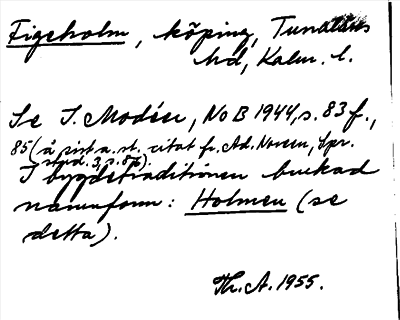 Figeholm, köping, Tunaläns
hd, Kalm. l.
Se I. Modéer, NoB 1944, s. 83 f.,
85 (å sist a. st. citat fr. Ad. Noreen, Spr.
stud. 3, s. 8 f.).
I bygdetraditionen brukad
namnform: Holmen (se
detta).
Th. A. 1955.